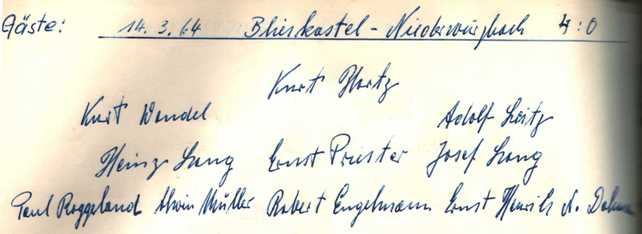 Gäste: 14.3.64 Blieskastel - Niederwürzbach 4:0
Kurt Hartz
Kurt Wendel Adolf Seitz
Heinz Lang Ernst Priester Josef Lang
Paul Roggeland Alwin Müller Robert Engelmann Ernst Henrich A.